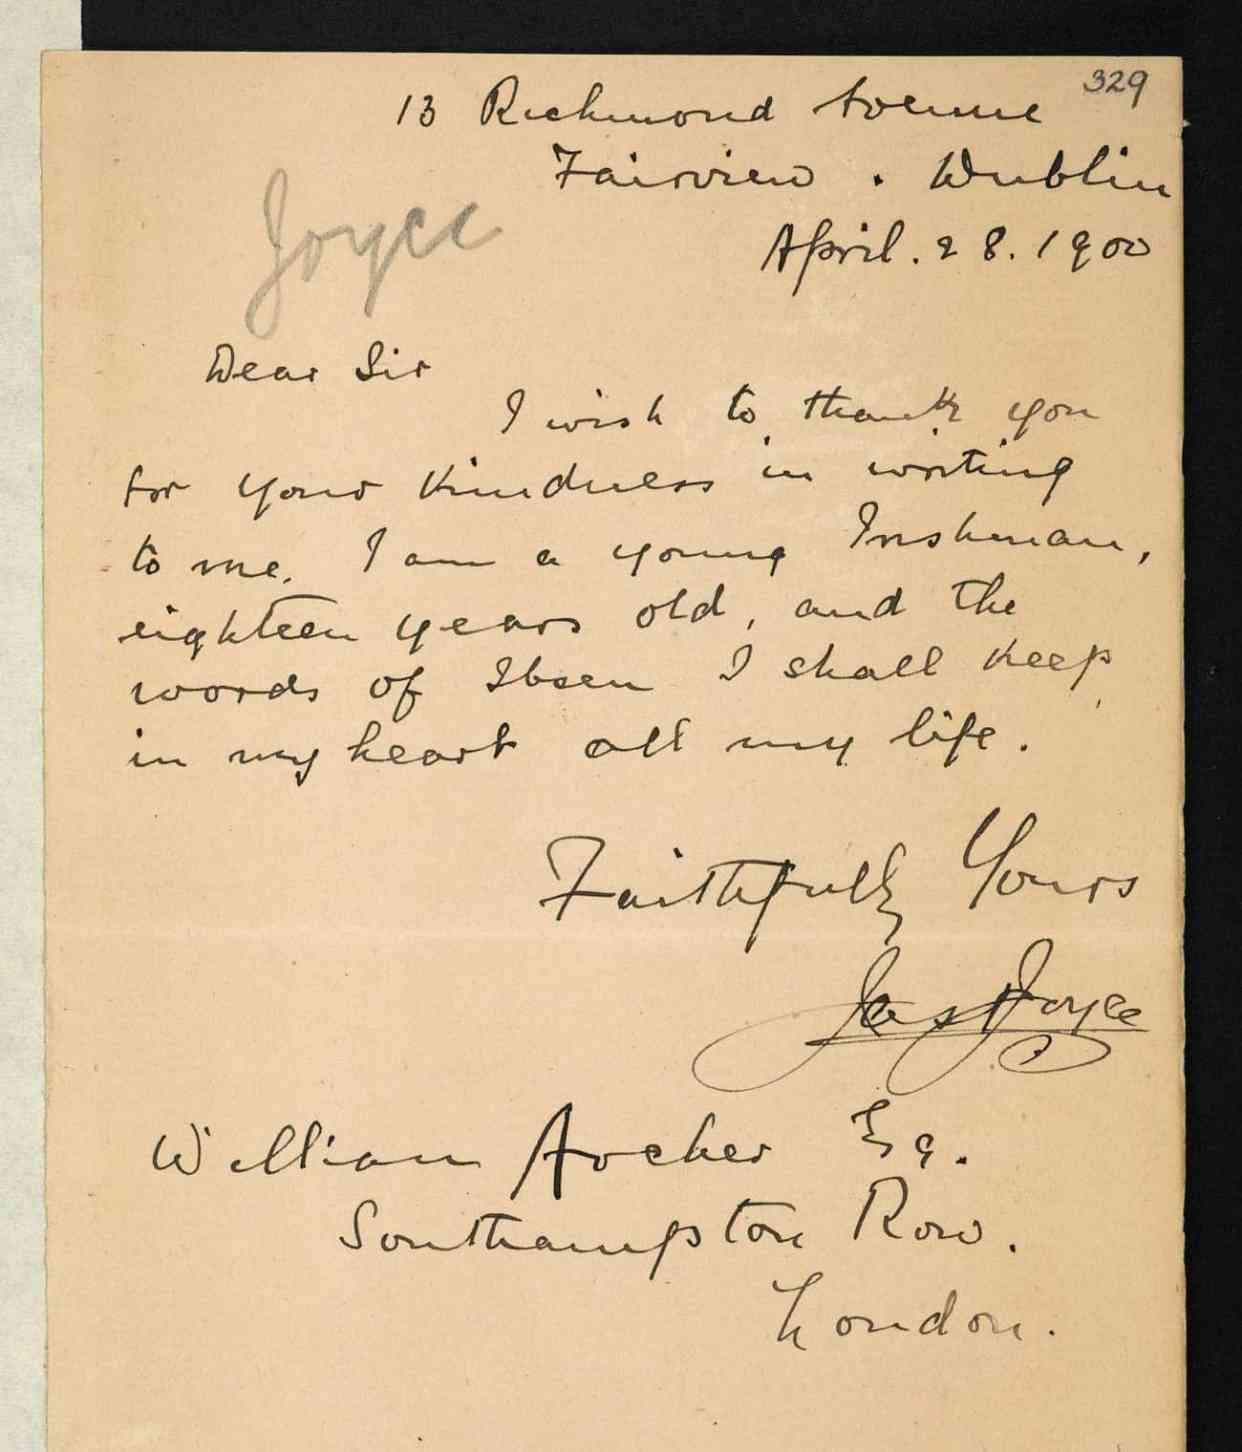 329
13 Richmond Avenue
Fairview . Dublin
Joyce
April. 28. 1900
Dear Sir
I wish to thank you
for your kindness in writing
to me. I am a young Irishman,
eighteen years old, and the
words of Ibsen I shall keep
in my heart all my life.
Faithfully Yours
Jas A Joyce
William Archer Esq.
Southampton Row.
London.